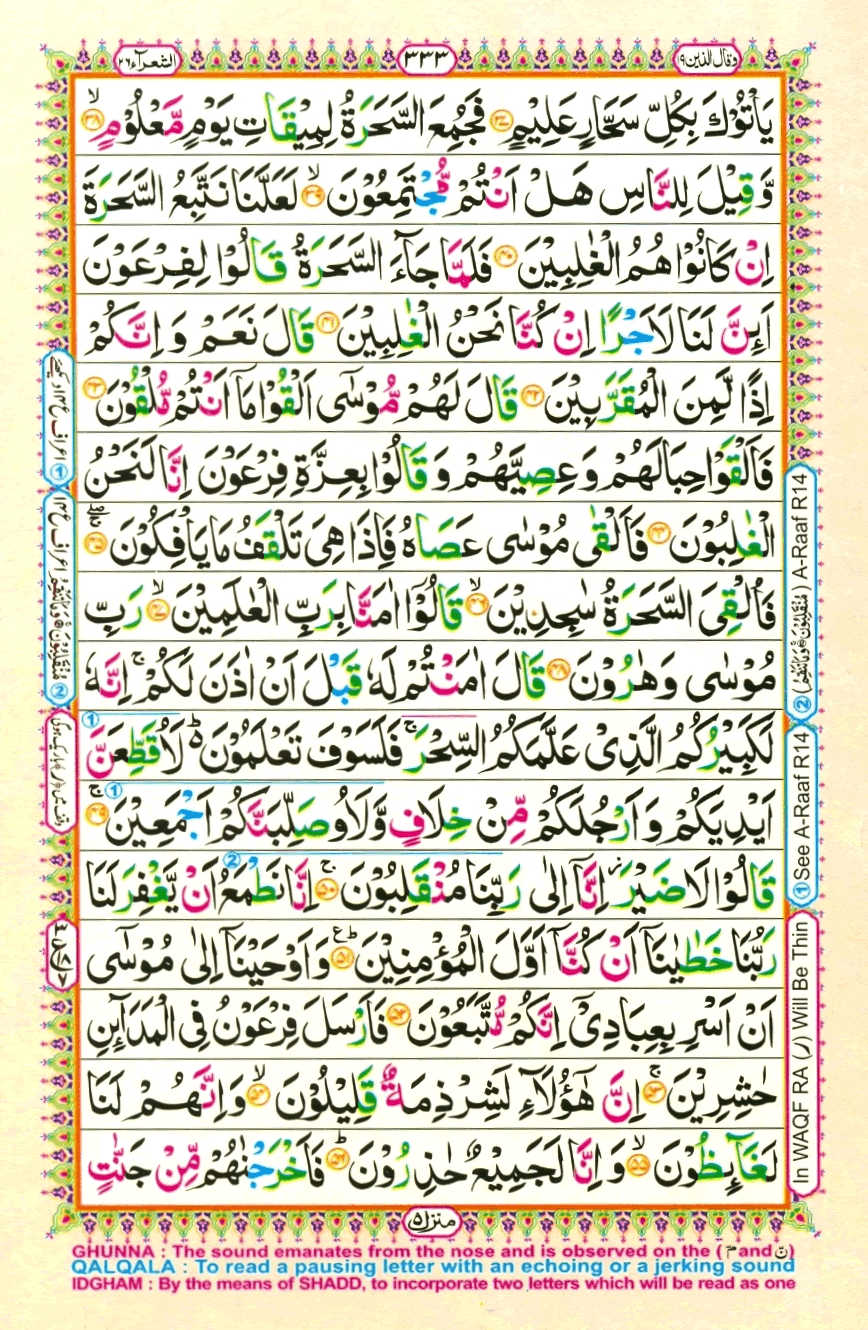 وقال الذين ۱۹
۳۳۳
الشعرآء ۲۶
يَاْتُوْكَ بِكُلِّ سَحَّارٍ عَلِيْمٍ ﴿۳۷﴾ فَجُمِعَ السَّحَرَةُ لِمِيْقَاتِ يَوْمٍ مَّعْلُوْمٍ ۙ﴿۳۸﴾
وَّقِيْلَ لِلنَّاسِ هَلْ اَنْتُمْ مُّجْتَمِعُوْنَ ۙ﴿۳۹﴾ لَعَلَّنَا نَتَّبِعُ السَّحَرَةَ
اِنْ كَانُوْا هُمُ الْغٰلِبِيْنَ ﴿۴۰﴾ فَلَمَّا جَآءَ السَّحَرَةُ قَالُوْا لِفِرْعَوْنَ
اَئِنَّ لَنَا لَاَجْرًا اِنْ كُنَّا نَحْنُ الْغٰلِبِيْنَ ﴿۴۱﴾ قَالَ نَعَمْ وَ اِنَّكُمْ
اِذًا لَّمِنَ الْمُقَرَّبِيْنَ ﴿۴۲﴾ قَالَ لَهُمْ مُّوْسٰۤى اَلْقُوْا مَاۤ اَنْتُمْ مُّلْقُوْنَ ﴿۴۳﴾
فَاَلْقَوْا حِبَالَهُمْ وَ عِصِيَّهُمْ وَ قَالُوْا بِعِزَّةِ فِرْعَوْنَ اِنَّا لَنَحْنُ
الْغٰلِبُوْنَ ﴿۴۴﴾ فَاَلْقٰى مُوْسٰى عَصَاهُ فَاِذَا هِىَ تَلْقَفُ مَا يَاْفِكُوْنَ ﴿۴۵﴾
فَاُلْقِىَ السَّحَرَةُ سٰجِدِيْنَ ۙ﴿۴۶﴾ قَالُوْۤا اٰمَنَّا بِرَبِّ الْعٰلَمِيْنَ ۙ﴿۴۷﴾ رَبِّ
مُوْسٰى وَ هٰرُوْنَ ﴿۴۸﴾ قَالَ اٰمَنْتُمْ لَهٗ قَبْلَ اَنْ اٰذَنَ لَكُمْ ۚ اِنَّهٗ
لَكَبِيْرُكُمُ الَّذِىْ عَلَّمَكُمُ السِّحْرَ ۚ فَلَسَوْفَ تَعْلَمُوْنَ ؕ لَاُقَطِّعَنَّ
اَيْدِيَكُمْ وَ اَرْجُلَكُمْ مِّنْ خِلَافٍ وَّلَاُوصَلِّبَنَّكُمْ اَجْمَعِيْنَ ۚ﴿۴۹﴾
قَالُوْا لَا ضَيْرَ ۫ اِنَّاۤ اِلٰى رَبِّنَا مُنْقَلِبُوْنَ ۚ﴿۵۰﴾ اِنَّا نَطْمَعُ اَنْ يَّغْفِرَ لَنَا
رَبُّنَا خَطٰيٰنَاۤ اَنْ كُنَّاۤ اَوَّلَ الْمُؤْمِنِيْنَ ؕ﴿۵۱﴾ وَ اَوْحَيْنَاۤ اِلٰى مُوْسٰۤى
اَنْ اَسْرِ بِعِبَادِىْۤ اِنَّكُمْ مُّتَّبَعُوْنَ ﴿۵۲﴾ فَاَرْسَلَ فِرْعَوْنُ فِى الْمَدَآئِنِ
حٰشِرِيْنَ ۚ﴿۵۳﴾ اِنَّ هٰٓؤُلَآءِ لَشِرْذِمَةٌ قَلِيْلُوْنَ ۙ﴿۵۴﴾ وَ اِنَّهُمْ لَنَا
لَغَآئِظُوْنَ ۙ﴿۵۵﴾ وَ اِنَّا لَجَمِيْعٌ حٰذِرُوْنَ ؕ﴿۵۶﴾ فَاَخْرَجْنٰهُمْ مِّنْ جَنّٰتٍ
② (مُنْقَلِبُوْنَ وَمَا تَنْقِمُ) A-Raaf R14
① See A-Raaf R14
In WAQF RA (ر) Will Be Thin
منزل ۵
GHUNNA : The sound emanates from the nose and is observed on the ( مّ and نّ)
QALQALA : To read a pausing letter with an echoing or a jerking sound
IDGHAM : By the means of SHADD, to incorporate two letters which will be read as one